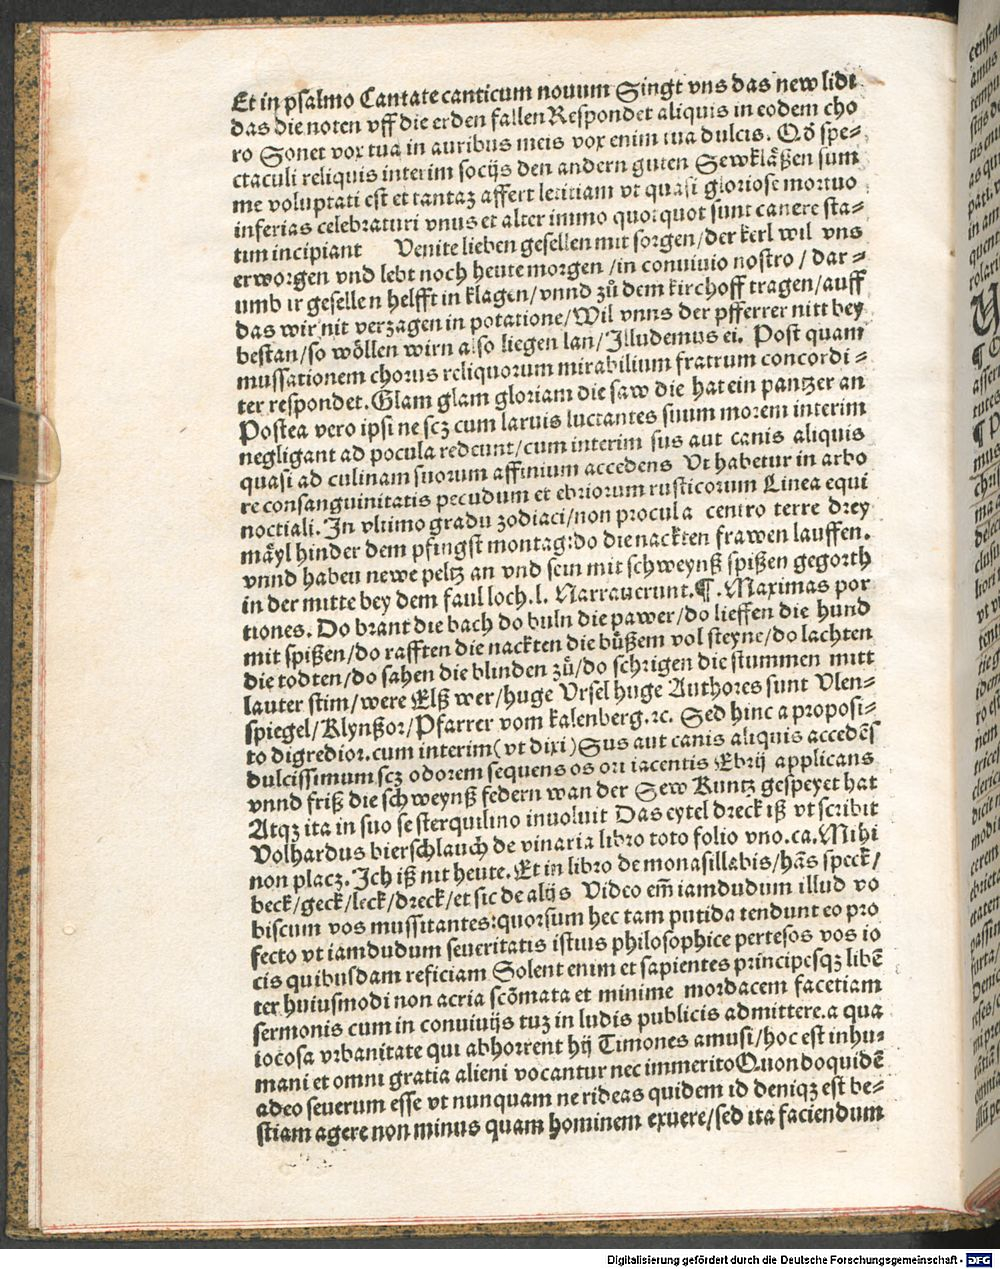 Et in psalmo Cantate canticum nouum Singt vns das new lidt
das die noten vff die erden fallen Respondet aliquis in eodem cho
ro Sonet vox tua in auribus meis vox enim tua dulcis. O ꝙ̈ spe⸗
ctaculi reliquis interim socijs den andern guten Sewklåßen sum
me voluptati est et tantaꝫ affert letitiam vt quasi gloriose mortuo
inferias celebraturi vnus et alter immo quotquot sunt canere sta⸗
tim incipiant Venite lieben gesellen mit sorgen/der kerl wil vns
erworgen vnd lebt noch heute morgen /in conuiuio nostro / dar⸗
umb ir gesellen helfft in klagen/vnnd zů dem kirchoff tragen/auff
das wir nit verzagen in potatione/Wil vnns der pfferrer nitt bey
bestan/so wöllen wirn also liegen lan/Illudemus ei. Post quam
mussationem chorus reliquorum mirabilium fratrum concordi⸗
ter respondet. Glam glam gloriam die saw die hat ein pantzer an
Postea vero ipsi ne scꝫ cum laruis luctantes suum morem interim
negligant ad pocula redeunt/cum interim sus aut canis aliquis
quasi ad culinam suorum affinium accedens Vt habetur in arbo
re consanguinitatis pecudum et ebriorum rusticorum Linea equi
noctiali. In vltimo gradu zodiaci/non procul a centro terre drey
måyl hinder dem pfingst montag:do die nackten frawen lauffen.
vnnd haben newe peltz an vnd sein mit schweynß spißen gegorth
in der mitte bey dem faul loch.l. Narrauerunt.¶. Maximas por
tiones. Do brant die bach do buln die pawer/do lieffen die hund
mit spißen/do rafften die nackten die bůßem vol steyne/do lachten
die todten/do sahen die blinden zů/do schrigen die stummen mitt
lauter stim/were Elß wer/huge Vrsel huge Authores sunt Vlen⸗
spiegel/Klynßor/Pfarrer vom kalenberg.ꝛc. Sed hinc a proposi⸗
to digredior.cum interim(vt dixi)Sus aut canis aliquis accedēs
dulcissimum scꝫ odorem sequens os ori iacentis Ebrij applicans
vnnd friß die schweynß federn wan der Sew Kuntz gespeyet hat
Atqꝫ ita in suo se sterquilino inuoluit Das eytel dreck iß vt scribit
Volhardus bierschlauch de vinaria libro toto folio vno.ca. Mihi
non placꝫ. Ich iß nit heute. Et in libro de monasillabis/hās speck/
beck/geck/leck/dreck/et sic de alijs Video em̄ iamdudum illud vo
biscum vos mussitantes:quorsum hec tam putida tendunt eo pro
fecto vt iamdudum seueritatis istius philosophice pertesos vos io
cis quibusdam reficiam Solent enim et sapientes principesqꝫ libē
ter huiusmodi non acria scōmata et minime mordacem facetiam
sermonis cum in conuiuijs tuꝫ in ludis publicis admittere.a qua
iocosa vrbanitate qui abhorrent hij Timones amusi/hoc est inhu⸗
mani et omni gratia alieni vocantur nec immerito Quondoquidē
adeo seuerum esse vt nunquam ne rideas quidem id deniqꝫ est be⸗
stiam agere non minus quam hominem exuere/sed ita faciendum
Digitalisierung gefördert durch die Deutsche Forschungsgemeinschaft - DFG